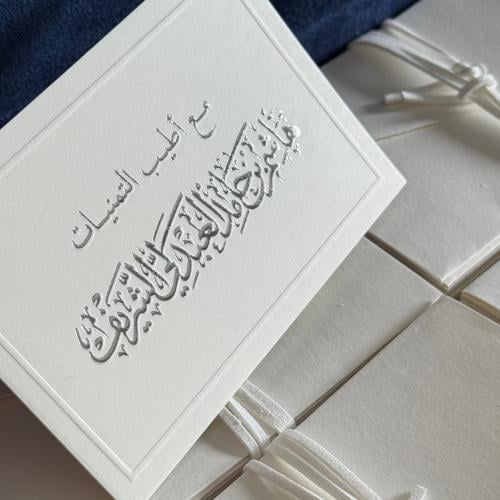 مع أطيب التمنيات
هاشم بن حامد العبدلي الشريف